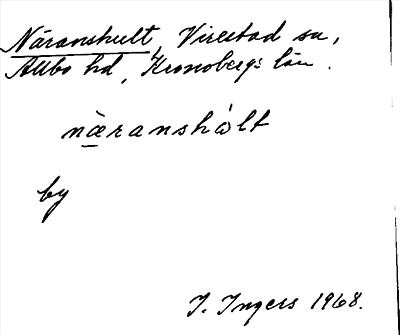 Näranshult, Virestad sn,
Allbo hd, Kronobergs län.
næ̀ranshɷ́lt
by
I. Ingers 1968.